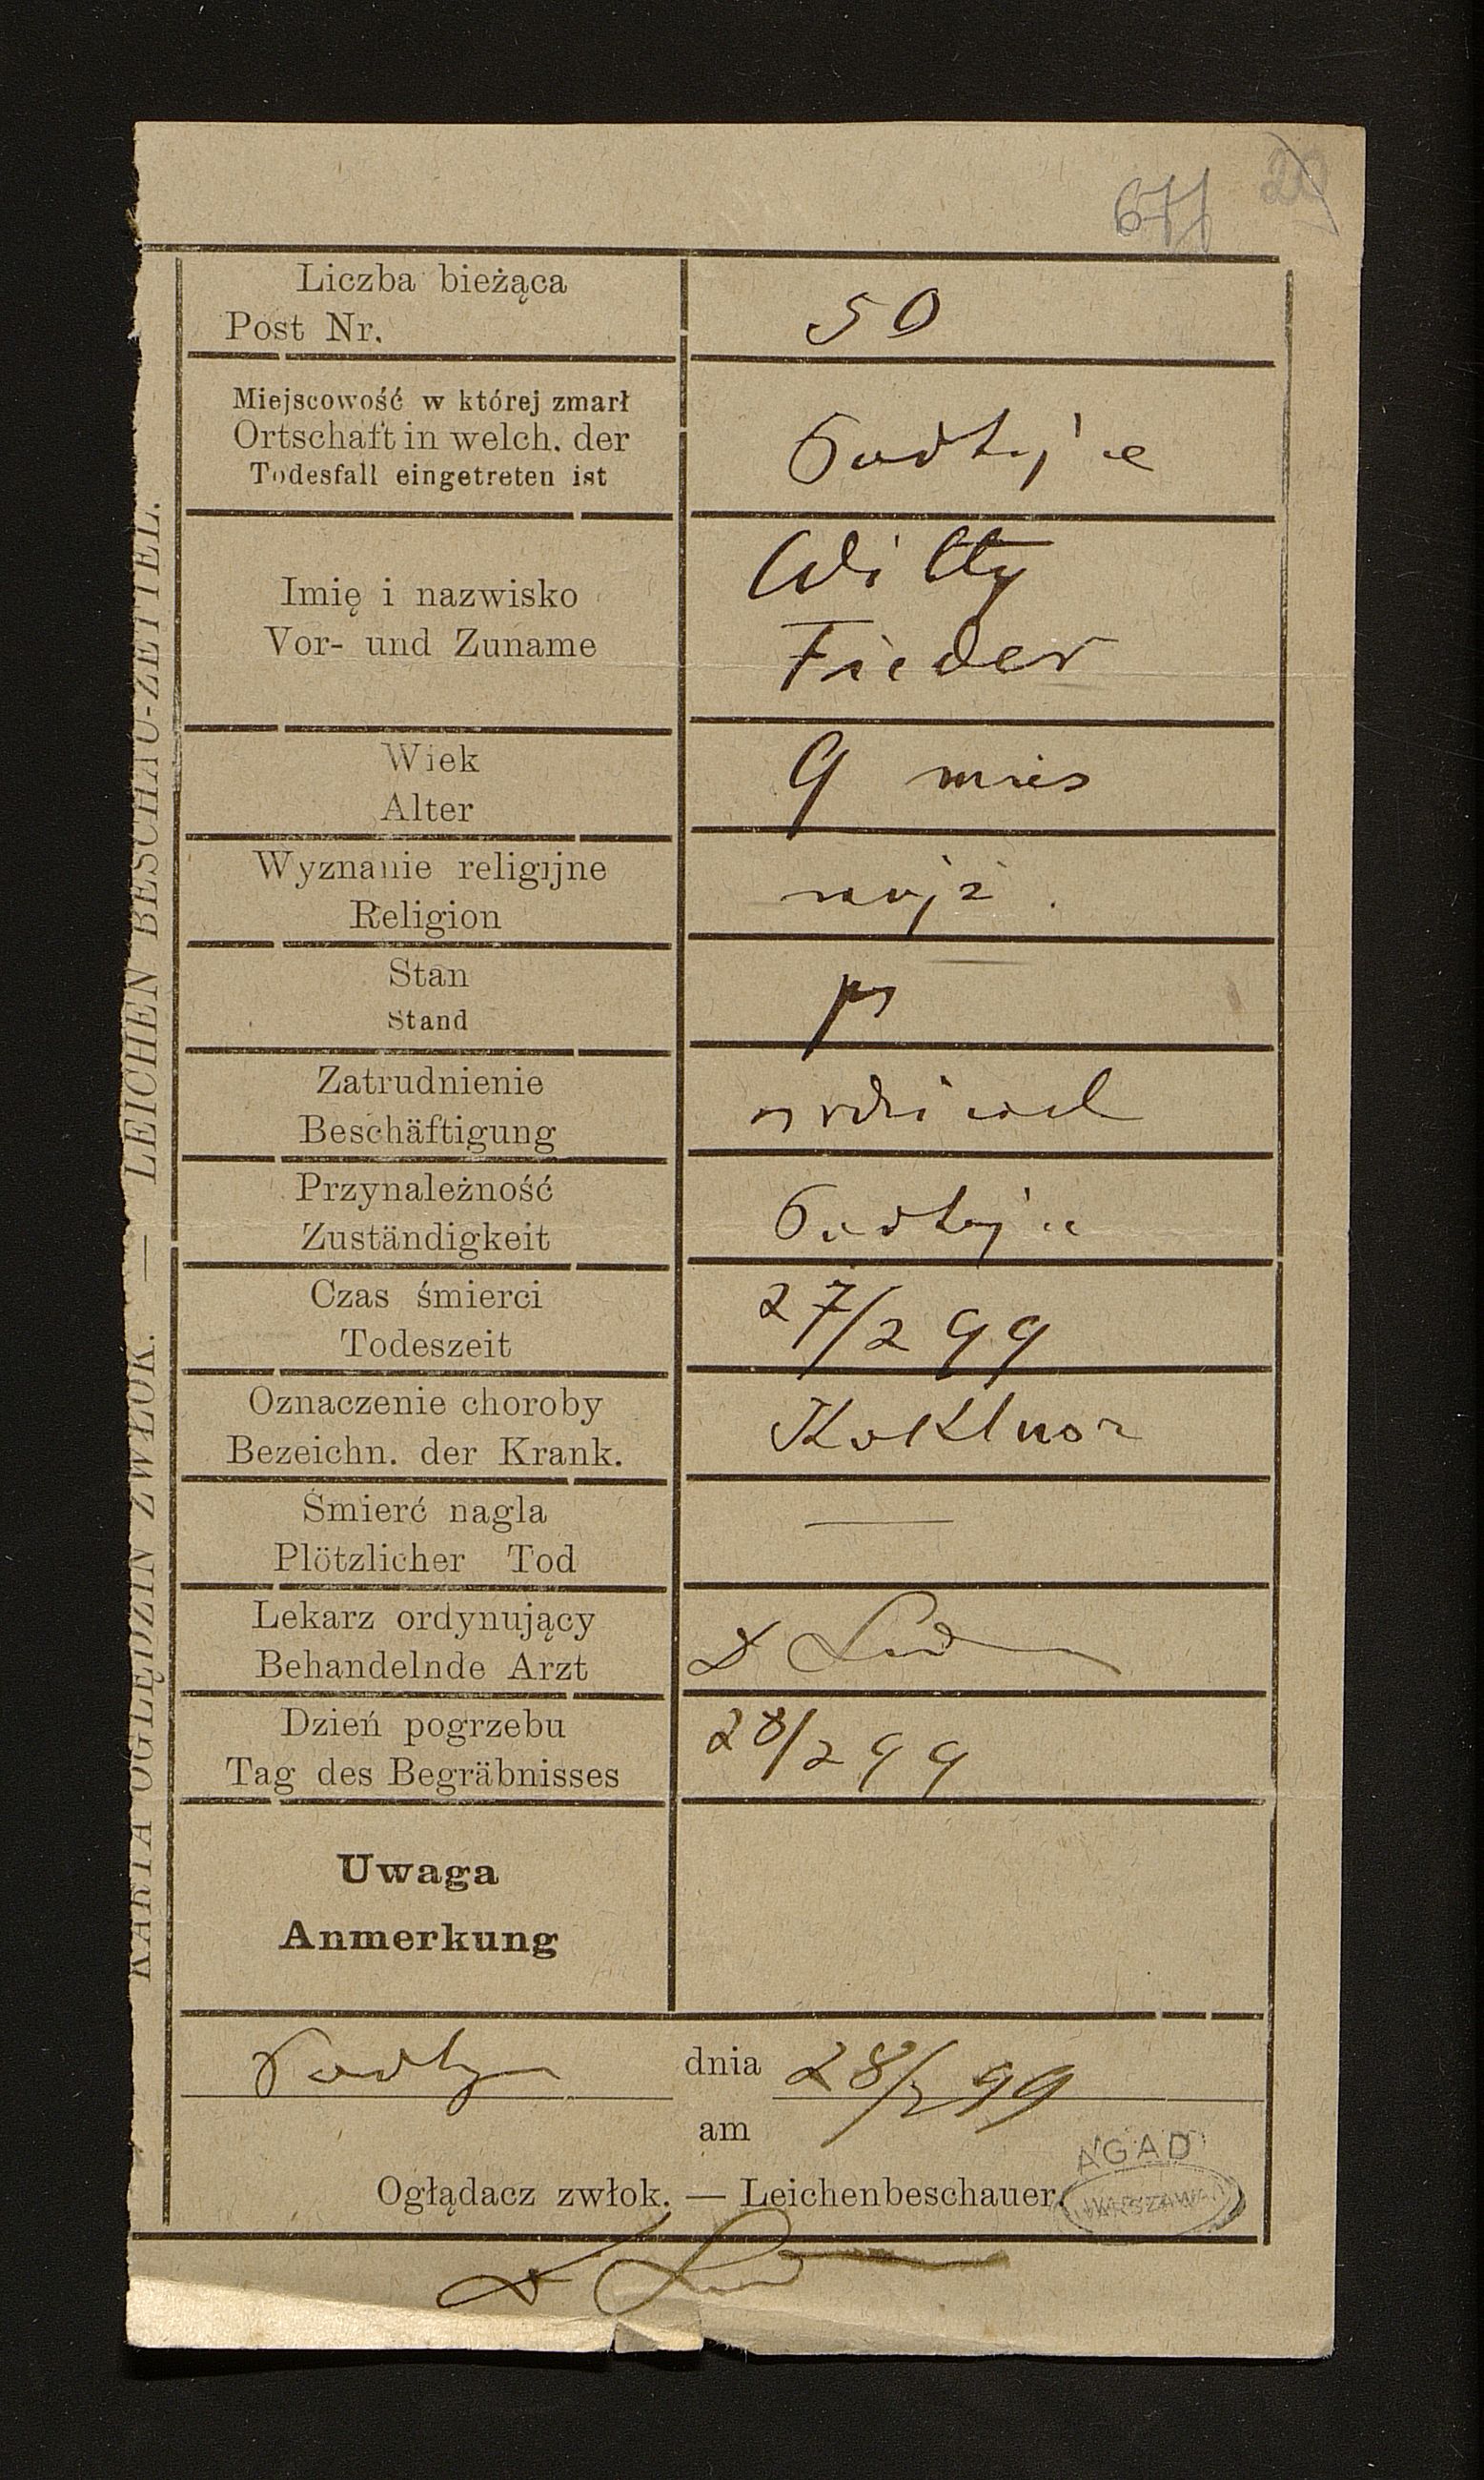 677 29
KARTA OGLĘDZIN ZWŁOK. — LEICHEN BESCHAU-ZETTEL.
Liczba bieżąca
Post Nr.
50
Miejscowość w której zmarł
Ortschaft in welch. der
Todesfall eingetreten ist
Podhajce
Imię i nazwisko
Vor- und Zuname
Witty
Fieder
Wiek
Alter
9 mies
Wyznanie religijne
Religion
mojż.
Stan
Stand
Zatrudnienie
Beschäftigung
Przynależność
Zuständigkeit
Podhajce
Czas śmierci
Todeszeit
27/2 99
Oznaczenie choroby
Bezeichn. der Krank.
Koklusz
Śmierć nagla
Plötzlicher Tod
—
Lekarz ordynujący
Behandelnde Arzt
Dzień pogrzebu
Tag des Begräbnisses
28/2 99
Uwaga
Anmerkung
dnia 28/2 99
am
Oglądacz zwłok. — Leichenbeschauer.
AGAD
WARSZAWA